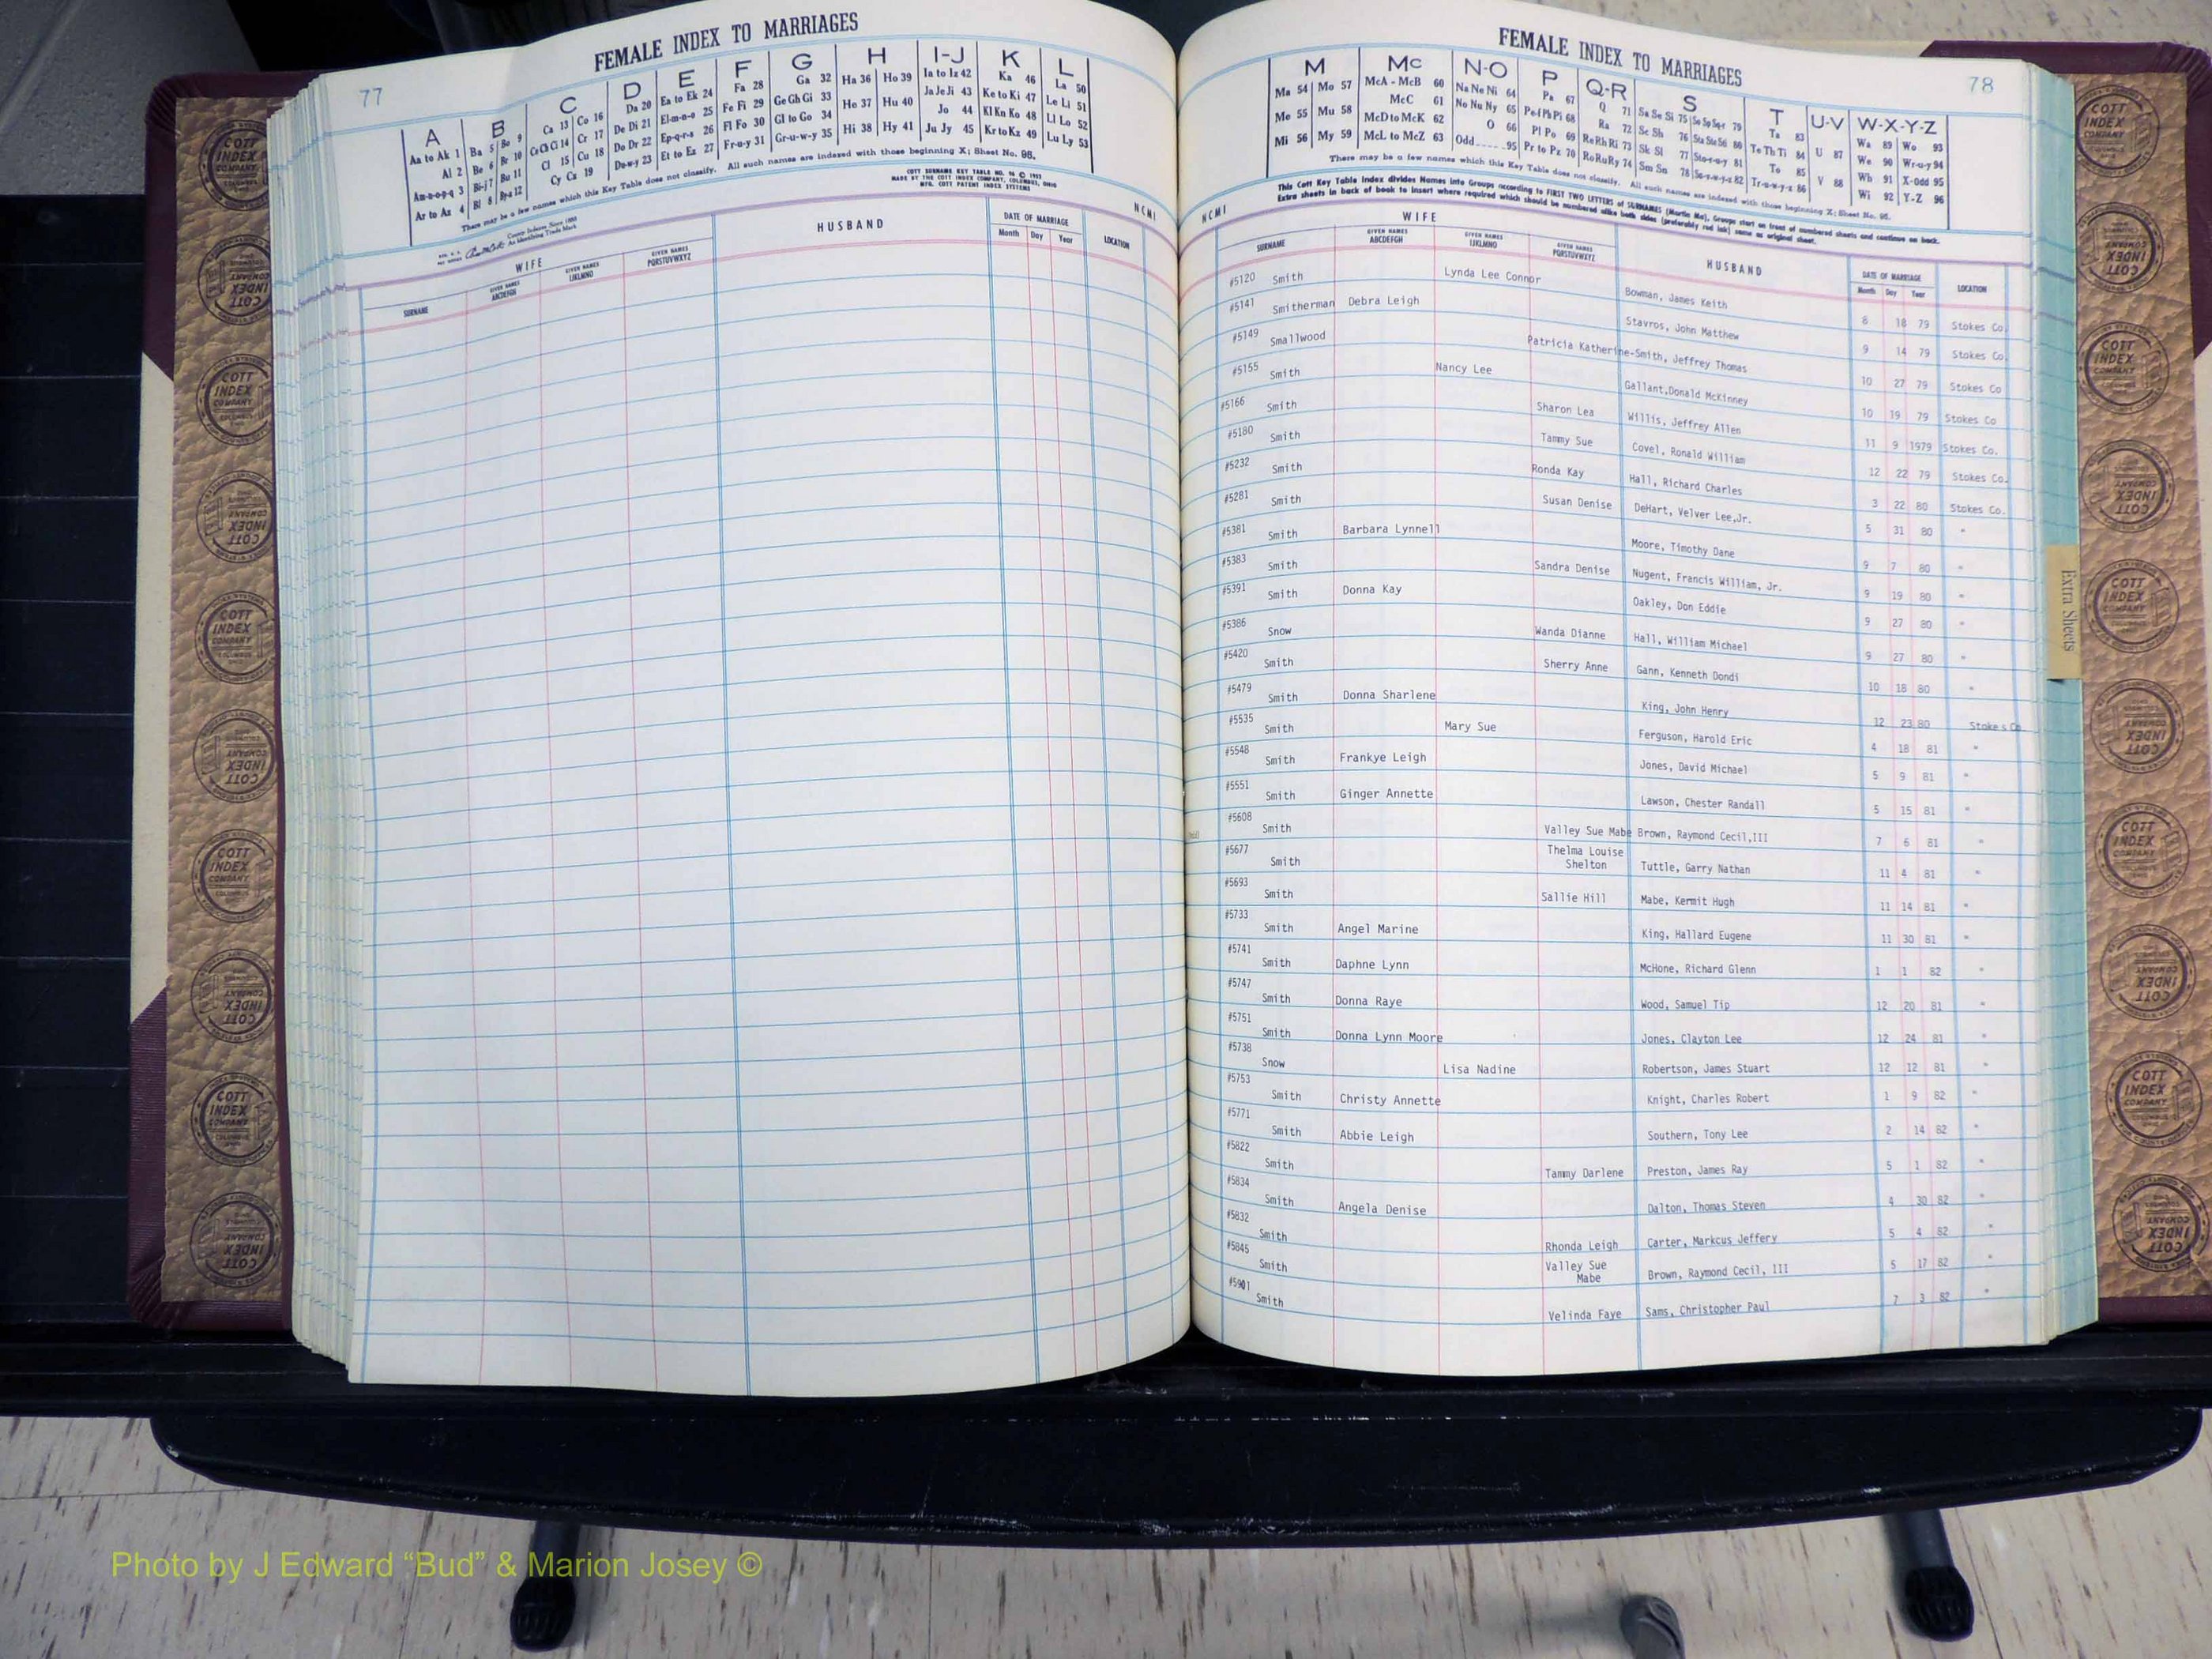 FEMALE INDEX TO MARRIAGES
77
A B C D E F G H I-J K L
Aa to Ak 1 Ba 5 Bo 9 Ca 13 Co 16 Da 20 Ea to Ek 24 Fa 28 Ga 32 Ha 36 Ho 39 Ia to Iz 42 Ka 46 La 50
Al 2 Be 6 Br 10 Ce Ch Ci 14 Cr 17 De Di 21 El-m-n-o 25 Fe Fi 29 Ge Gh Gi 33 He 37 Hu 40 Ja Je Ji 43 Ke to Ki 47 Le Li 51
Am-n-o-p-q 3 Bi-j 7 Bu 11 Cl 15 Cu 18 Do Dr 22 Ep-q-r-s 26 Fl Fo 30 Gl to Go 34 Hi 38 Hy 41 Jo 44 Kl Kn Ko 48 Ll Lo 52
Ar to Az 4 Bl 8 By-z 12 Cy Cz 19 Du-w-y 23 Et to Ez 27 Fr-u-y 31 Gr-u-w-y 35 Ju Jy 45 Kr to Kz 49 Lu Ly 53
There may be a few names which this Key Table does not classify. All such names are indexed with those beginning X; Sheet No. 96.
COTT SURNAME KEY TABLE NO. 96 © 1953
MADE BY THE COTT INDEX COMPANY, COLUMBUS, OHIO
MFG. COTT PATENT INDEX SYSTEMS
County Indexes Since 1888
An Identifying Trade Mark
NCMI
WIFE
HUSBAND
DATE OF MARRIAGE
LOCATION
SURNAME
GIVEN NAMES ABCDEFGH
GIVEN NAMES IJKLMNO
GIVEN NAMES PQRSTUVWXYZ
Month Day Year
FEMALE INDEX TO MARRIAGES
78
M Mc N-O P Q-R S T U-V W-X-Y-Z
Ma 54 Mo 57 McA - McB 60 Na Ne Ni 64 Pa 67 Q 71 Sa Se Si 75 79 Ta 83 Wa 89 Wo 93
Me 55 Mu 58 McC 61 No Nu Ny 65 Pe-f Ph Pi 68 Ra 72 Sc Sh 76 Sta Ste 80 Te Th Ti 84 U 87 We 90 Wr-u-y 94
Mi 56 My 59 McD to McK 62 O 66 Pl Po 69 Re Rh Ri 73 Sk Sl 77 Sto-r-u-y 81 To 85 V 88 Wh 91 X-Odd 95
McL to McZ 63 Odd......95 Pr to Pz 70 Ro Ru Ry 74 Sm Sn 78 Su-v-w-y-z 82 Tr-u-w-y-z 86 Wi 92 Y-Z 96
There may be a few names which this Key Table does not classify. All such names are indexed with those beginning X; Sheet No. 96.
This Cott Key Table Index divides Names into Groups according to FIRST TWO LETTERS of SURNAMES (Martin Ma), Groups start on front of numbered sheets and continue on back.
Extra sheets in back of book to insert where required which should be numbered alike both sides (preferably red ink) same as original sheet.
NCMI
WIFE
HUSBAND
DATE OF MARRIAGE
LOCATION
SURNAME
GIVEN NAMES ABCDEFGH
GIVEN NAMES IJKLMNO
GIVEN NAMES PQRSTUVWXYZ
Month Day Year
#5120 Smith Lynda Lee Connor Bowman, James Keith 8 18 79 Stokes Co.
#5141 Smitherman Debra Leigh Stavros, John Matthew 9 14 79 Stokes Co.
#5149 Smallwood Patricia Katherine-Smith, Jeffrey Thomas 10 27 79 Stokes Co
#5155 Smith Nancy Lee Gallant,Donald McKinney 10 19 79 Stokes Co
#5166 Smith Sharon Lea Willis, Jeffrey Allen 11 9 1979 Stokes Co.
#5180 Smith Tammy Sue Covel, Ronald William 12 22 79 Stokes Co.
#5232 Smith Ronda Kay Hall, Richard Charles 3 22 80 Stokes Co.
#5281 Smith Susan Denise DeHart, Velver Lee,Jr. 5 31 80 "
#5381 Smith Barbara Lynnell Moore, Timothy Dane 9 7 80 "
#5383 Smith Sandra Denise Nugent, Francis William, Jr. 9 19 80 "
#5391 Smith Donna Kay Oakley, Don Eddie 9 27 80 "
#5386 Snow Wanda Dianne Hall, William Michael 9 27 80 "
#5420 Smith Sherry Anne Gann, Kenneth Dondi 10 18 80 "
#5479 Smith Donna Sharlene King, John Henry 12 23 80 Stokes Co
#5535 Smith Mary Sue Ferguson, Harold Eric 4 18 81 "
#5548 Smith Frankye Leigh Jones, David Michael 5 9 81 "
#5551 Smith Ginger Annette Lawson, Chester Randall 5 15 81 "
#5608 Smith Valley Sue Mabe Brown, Raymond Cecil,III 7 6 81 "
#5677 Smith Thelma Louise Shelton Tuttle, Garry Nathan 11 4 81 "
#5693 Smith Sallie Hill Mabe, Kermit Hugh 11 14 81 "
#5733 Smith Angel Marine King, Hallard Eugene 11 30 81 "
#5741 Smith Daphne Lynn McHone, Richard Glenn 1 1 82 "
#5747 Smith Donna Raye Wood, Samuel Tip 12 20 81 "
#5751 Smith Donna Lynn Moore Jones, Clayton Lee 12 24 81 "
#5738 Snow Lisa Nadine Robertson, James Stuart 12 12 81 "
#5753 Smith Christy Annette Knight, Charles Robert 1 9 82 "
#5771 Smith Abbie Leigh Southern, Tony Lee 2 14 82 "
#5822 Smith Tammy Darlene Preston, James Ray 5 1 82 "
#5834 Smith Angela Denise Dalton, Thomas Steven 4 30 82 "
#5832 Smith Rhonda Leigh Carter, Markcus Jeffery 5 4 82 "
#5845 Smith Valley Sue Mabe Brown, Raymond Cecil, III 5 17 82 "
#5901 Smith Velinda Faye Sams, Christopher Paul 7 3 82 "
Extra Sheets
COTT INDEX COMPANY
Photo by J Edward “Bud” & Marion Josey ©